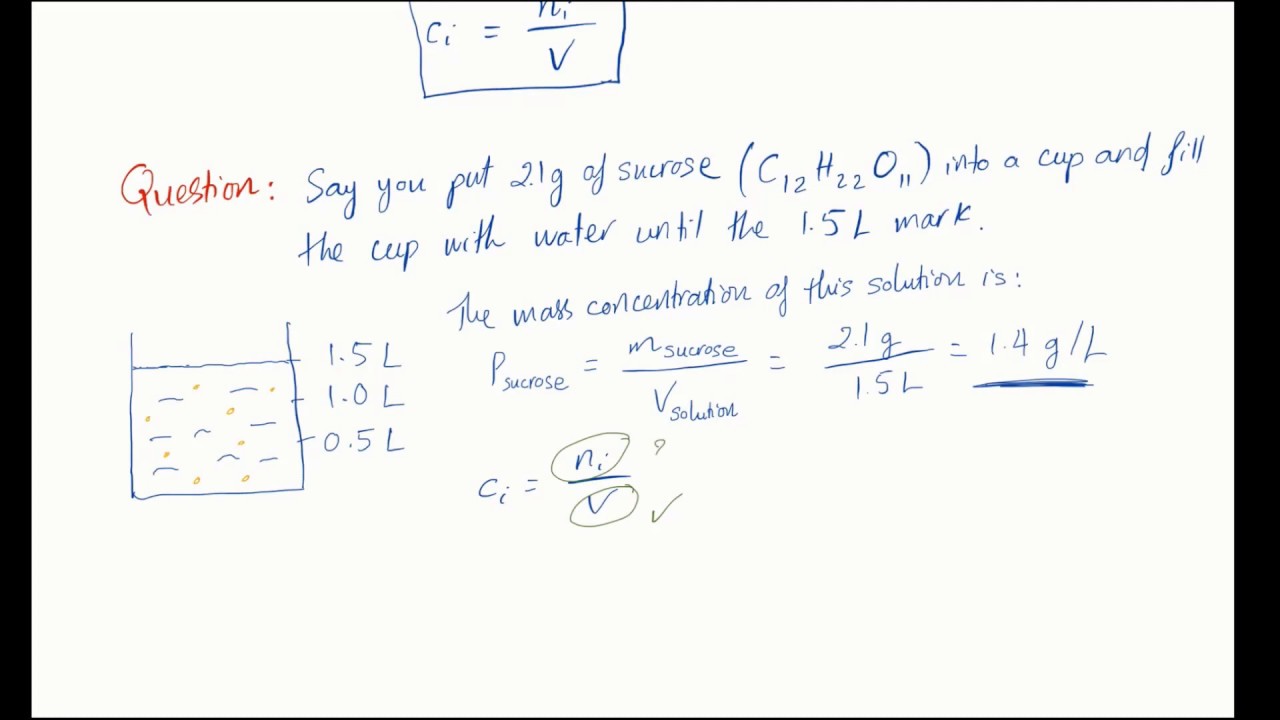 cᵢ = nᵢ / V
Question: Say you put 2.1g of sucrose (C₁₂H₂₂O₁₁) into a cup and fill
the cup with water until the 1.5L mark.
The mass concentration of this solution is:
ρsucrose = msucrose / Vsolution = 2.1g / 1.5L = 1.4 g/L
1.5 L
1.0 L
0.5 L
cᵢ = nᵢ / V ? ✓